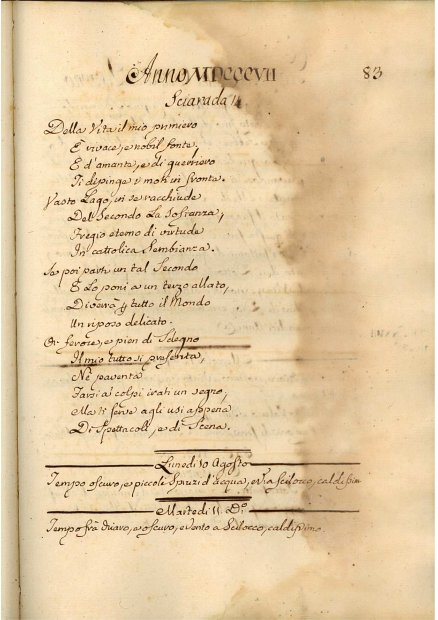 Anno MDCCCVII
83
Sciarada
Della Vita il mio primiero
E vivace, e nobil fonte,
E d'amante, e di guerriero
Ti dipinge i moti in fronte.
Vasto Lago, in se racchiude
Del Secondo La Sostanza,
Fregio eterno di virtude
In cattolica Sembianza.
Se poi parti un tal Secondo
E Lo poni a un terzo allato,
Diverrà p tutto il Mondo
Un riposo delicato.
Or feroce, e pien di Sdegno
Il mio tutto si presenta,
Nè paventa
Farsi a' colpi irati un segno,
Ma ti serve agli usi appena
Di Spettacoli, e di Scena.
Lunedi 10 Agosto
Tempo oscuro, e piccoli Spruzi d'acqua, Scilocco, caldissimo
Martedi 11 Do
Tempo frà chiaro, e oscuro, e vento a Scilocco, caldissimo.